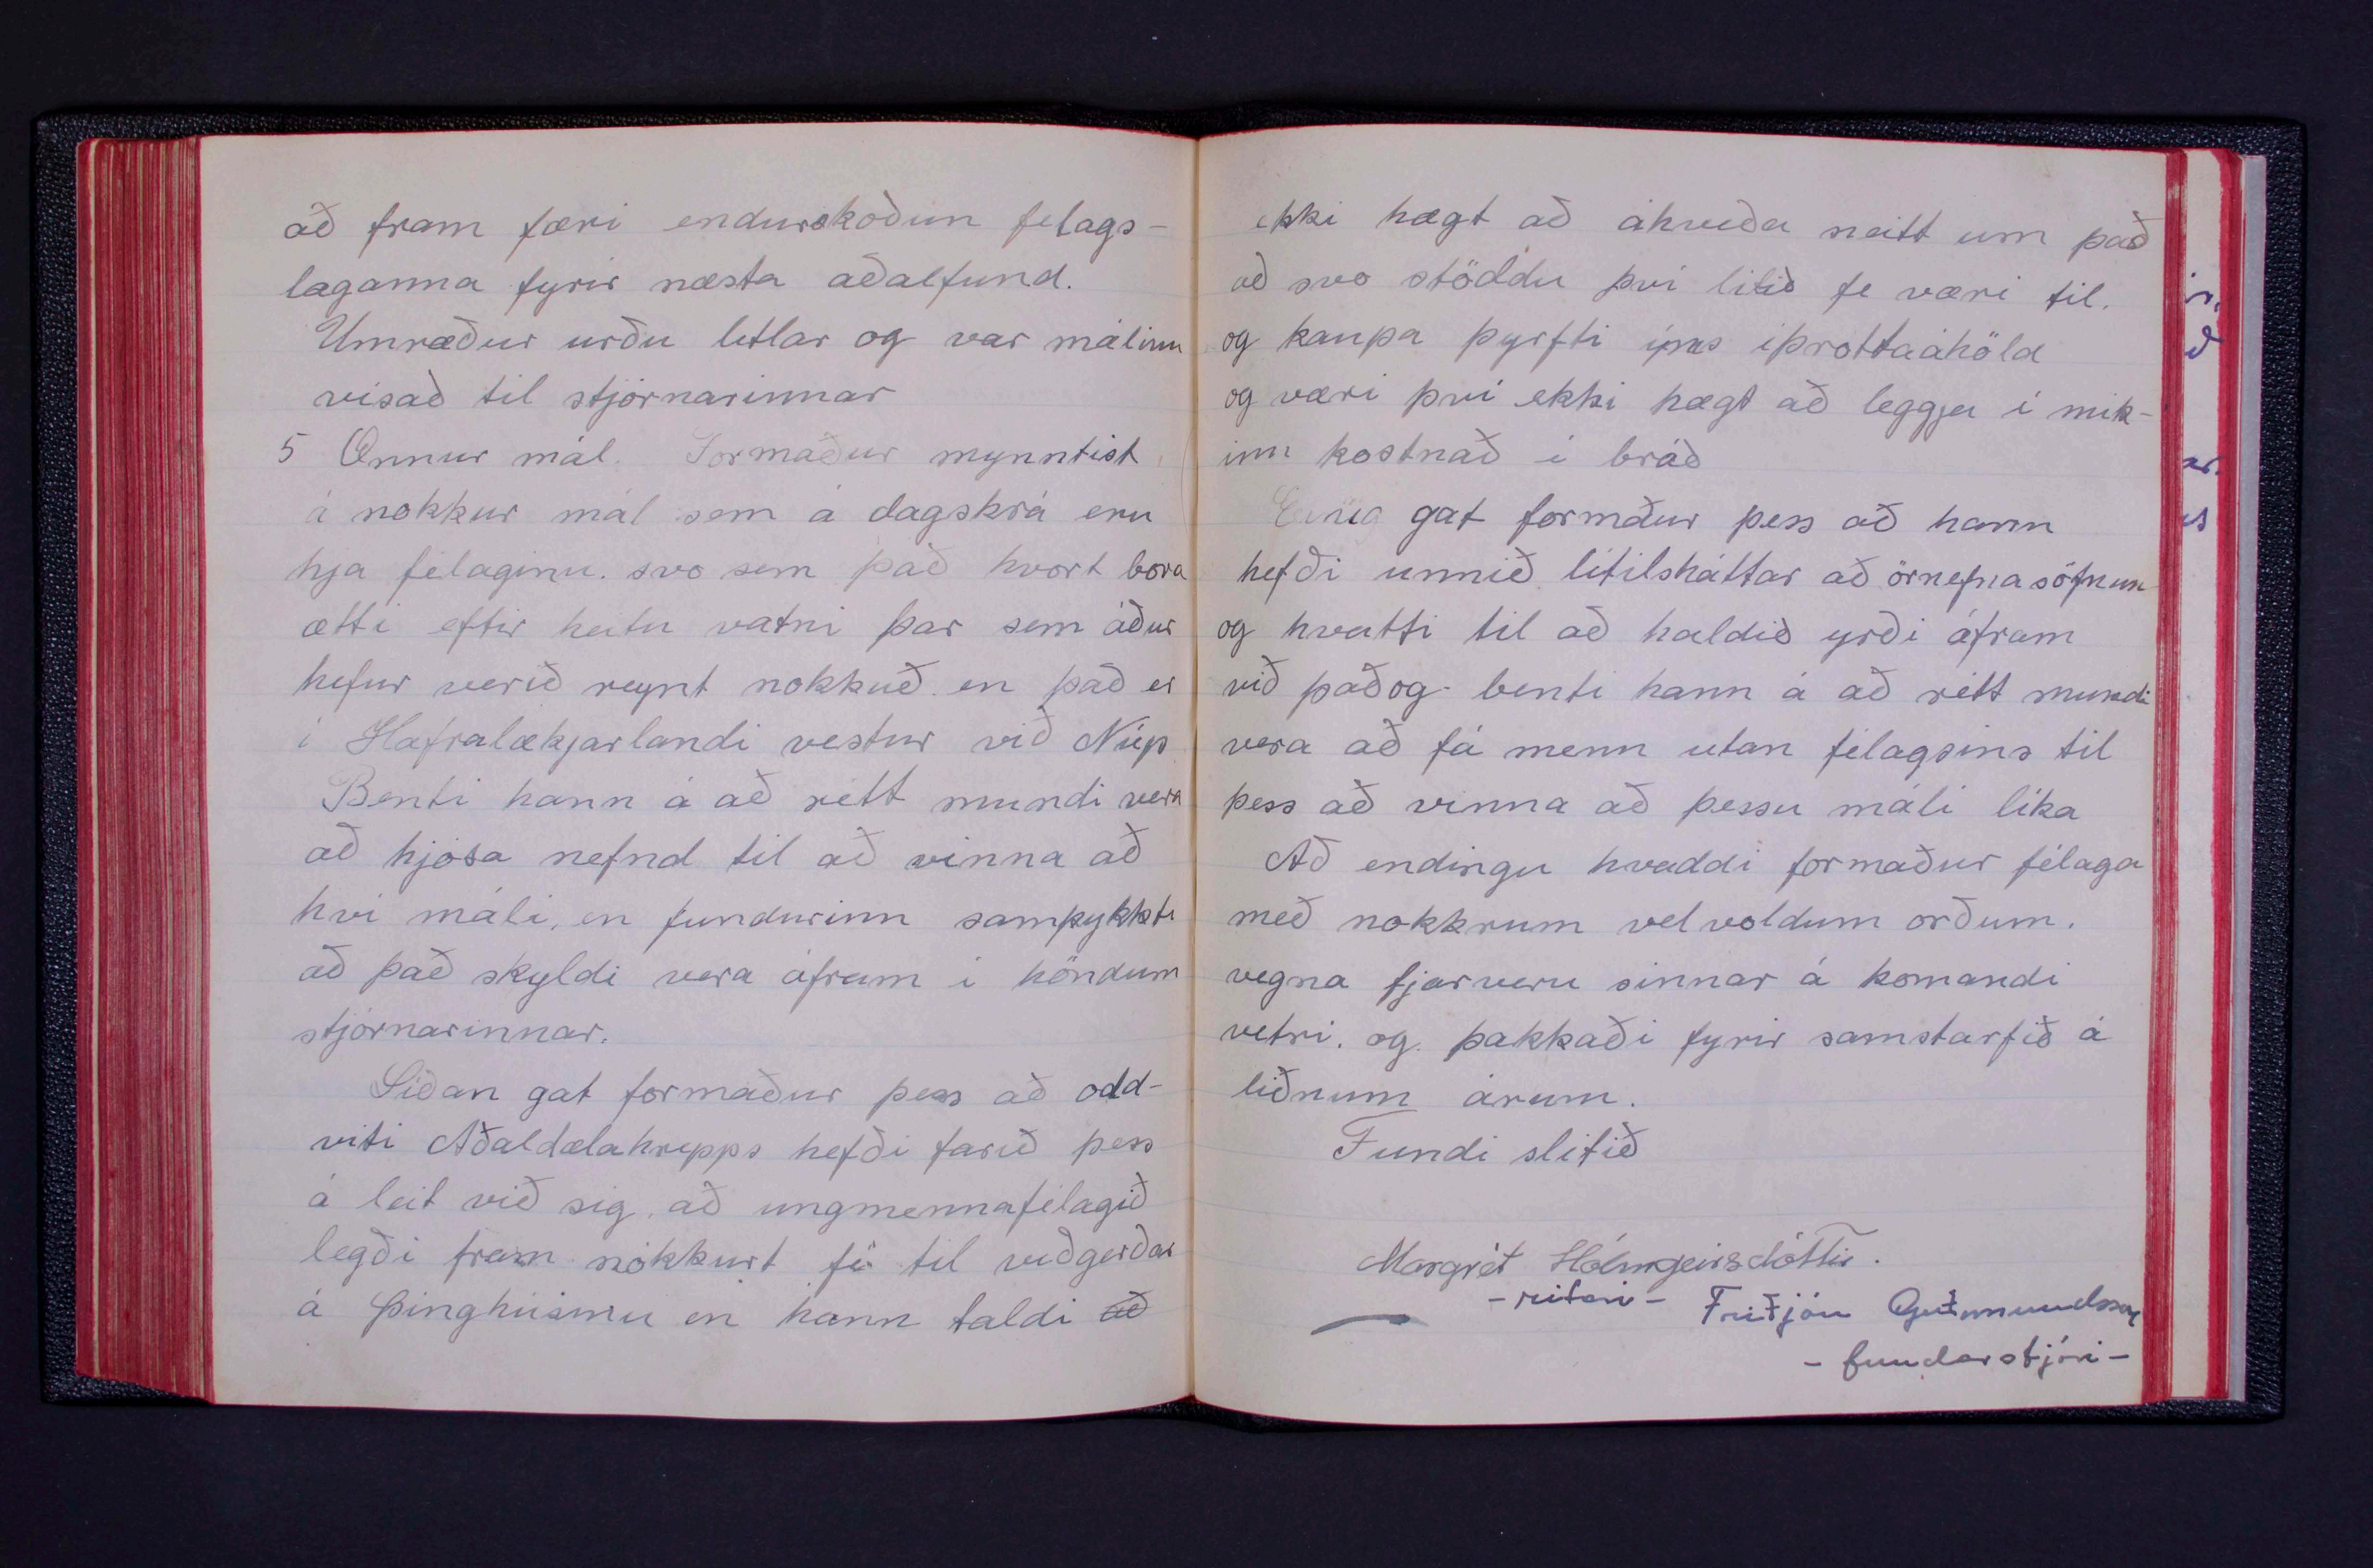 að fram færi endurskoðun felags-
laganna fyrir næsta aðalfund.
Umræður urðu litlar og var málinu
visað til stjórnarinnar
5 Önnur mál. Formaður mynntist
á nokkur mál sem á dagskrá eru
hja félaginu. svo sem það hvort bora
ætti eftir heitu vatni þar sem áður
hefur verið reynt nokkuð en það er
í Hafralækjarlandi vestur við Núp
Benti hann á að rétt mundi vera
að kjósa nefnd til að vinna að
því máli, en fundurinn samþykkti
að það skyldi vera áfram i höndum
stjórnarinnar.
Siðan gat formaður þess að odd-
viti Aðaldælahrepps hefði farið þess
á leit við sig. að ungmennafélagið
legði fram nokkurt fé til viðgerðar
á Þinghúsinu en hann taldi að
ekki hægt að ákveða neitt um það
að svo stöddu því litið fe væri til.
og kaupa þyrfti ýms iþróttaáhöld
og væri því ekki hægt að leggja í mik-
inn kostnað i bráð
Einig gat formður þess að hann
hefði unnið lítilsháttar að örnefnasöfnun
og hvatti til að haldið yrði áfram
við það og benti hann á að rétt mundi
vera að fá menn utan félagsins til
þess að vinna að þessu máli líka
Að endingu kvaddi formaður félaga
með nokkrum vel voldum orðum.
vegna fjarveru sinnar á komandi
vetri. og þakkaði fyrir samstarfið á
liðnum árum.
Fundi slitið
Margrét Hólmgeirsdóttir.
- ritari -
Friðjón Guðmundsson
- fundarstjóri -